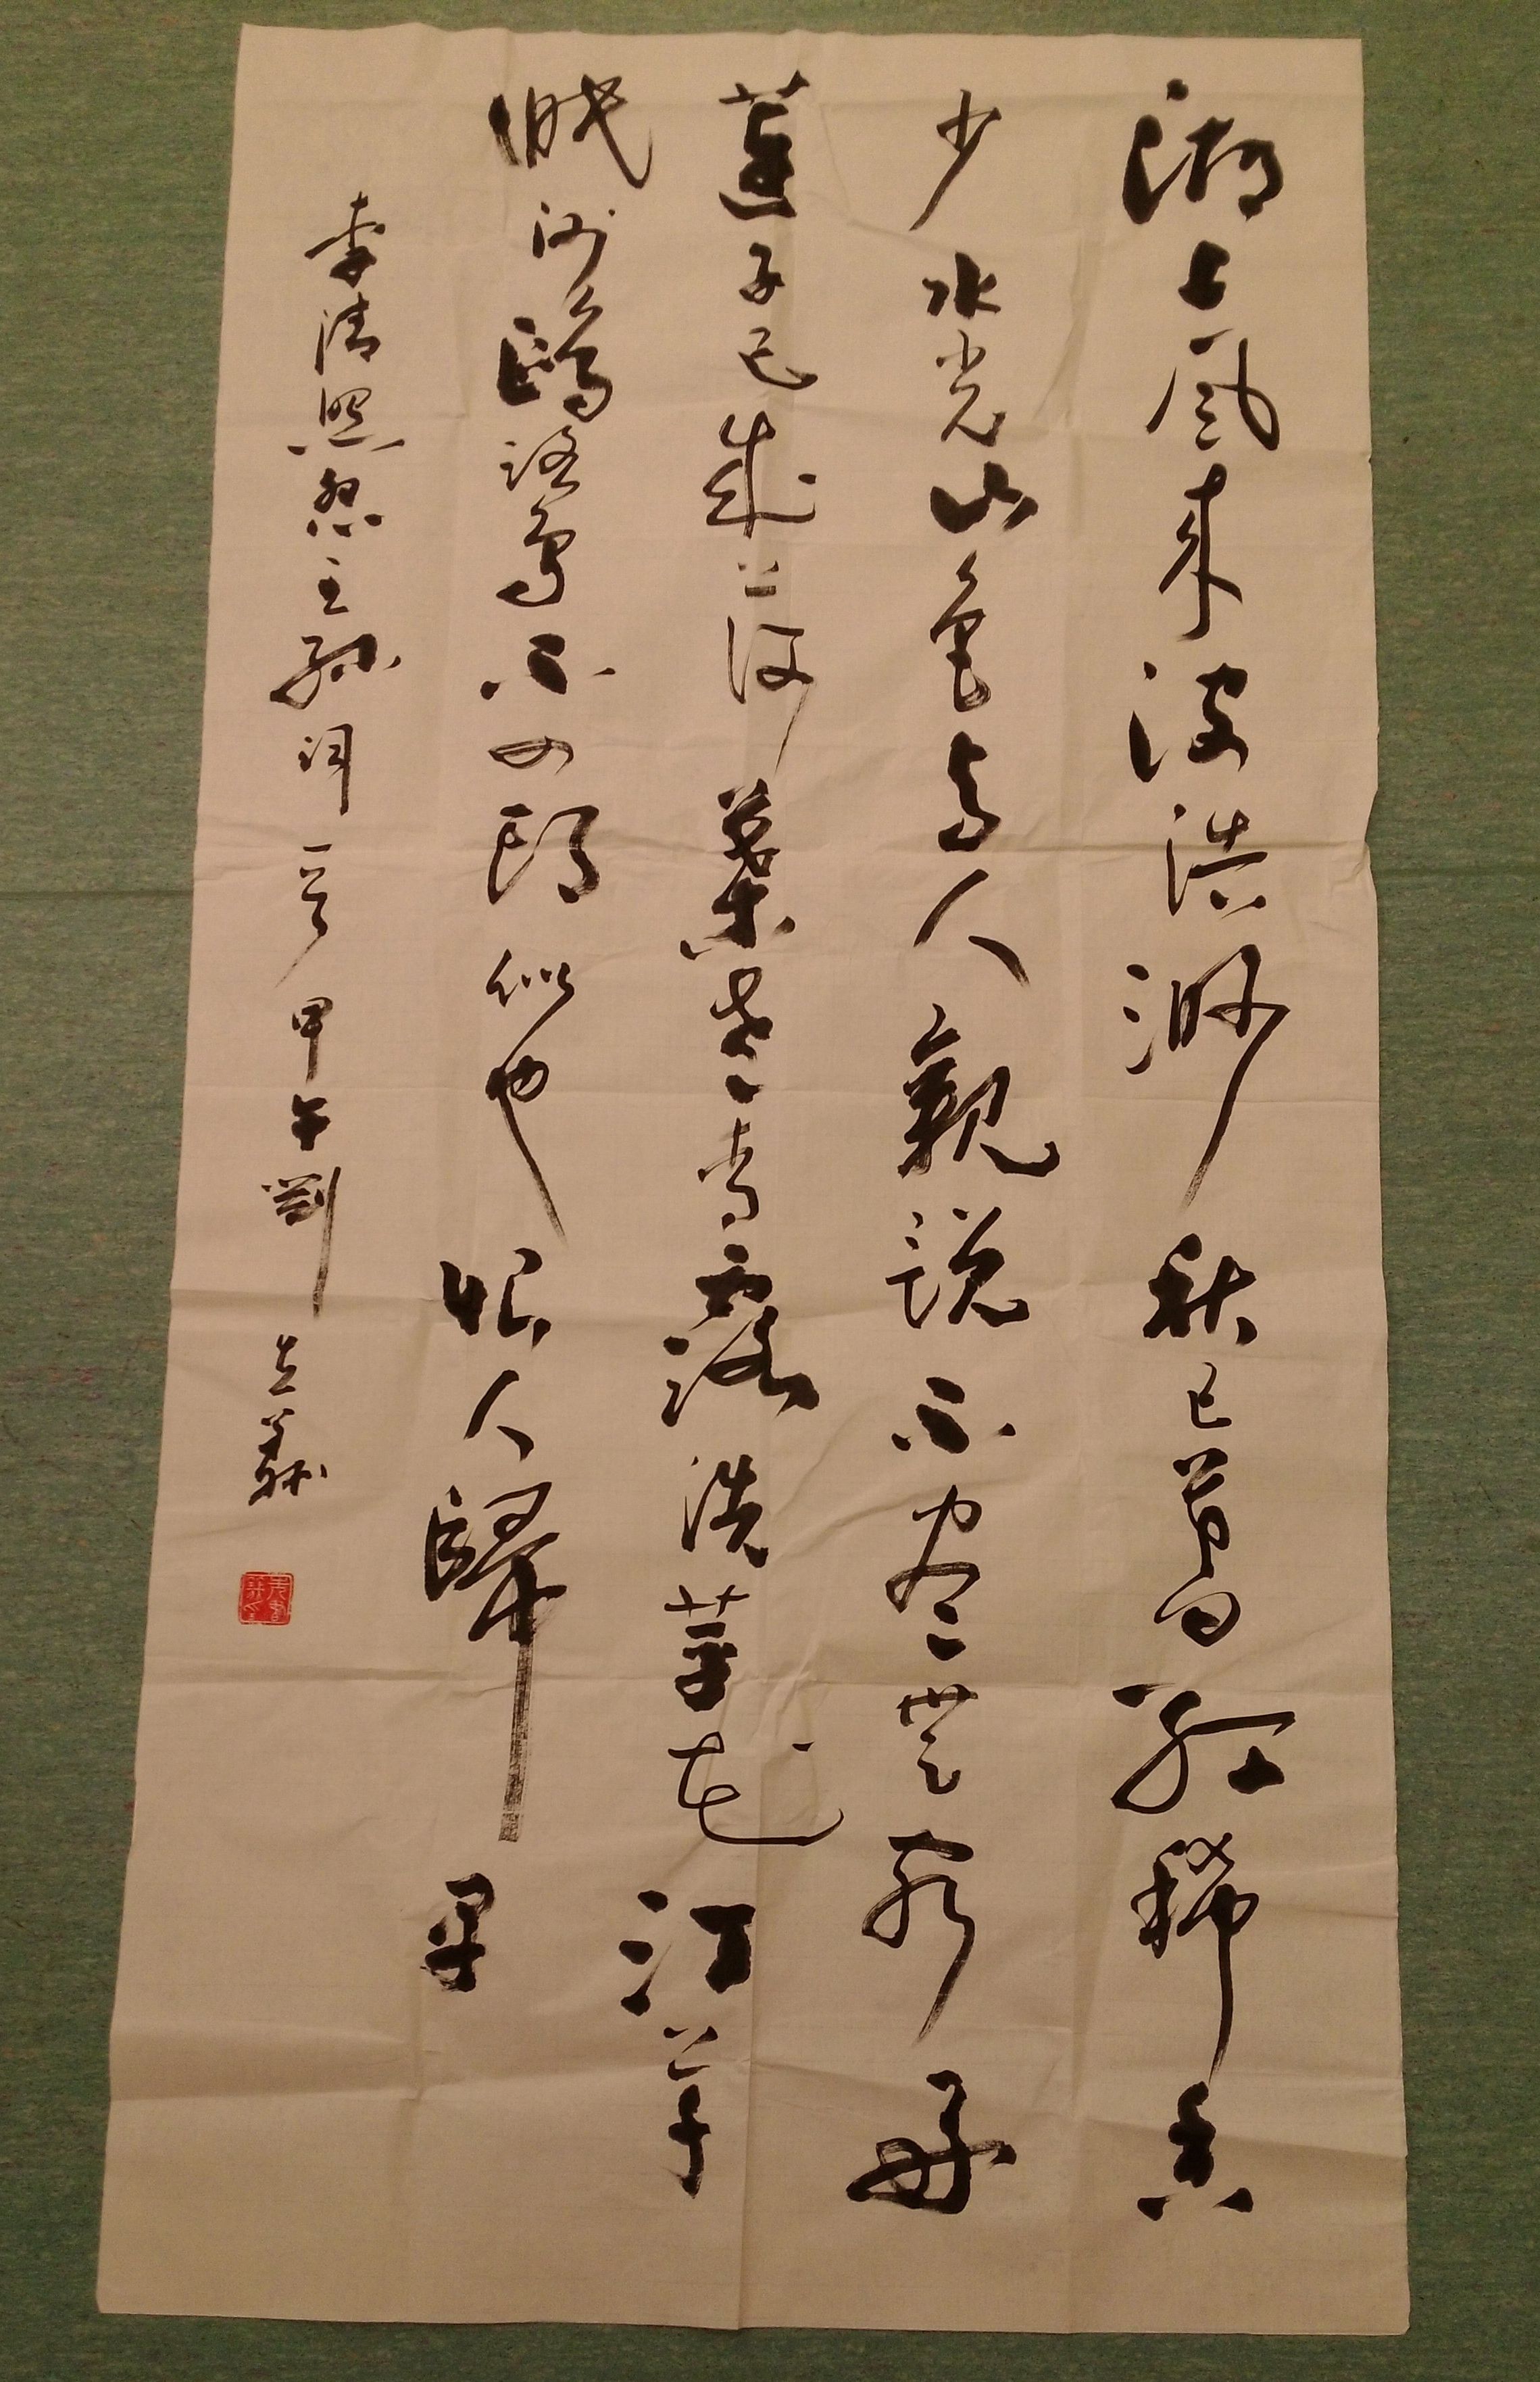 湖上風來波浩渺秋已暮紅稀香
少水光山色與人親說不盡無窮好
蓮子已成荷葉老青露洗苹花汀草
眠沙鷗鷺不回頭似也恨人歸早
李清照怨王孫詞一首甲午劉立